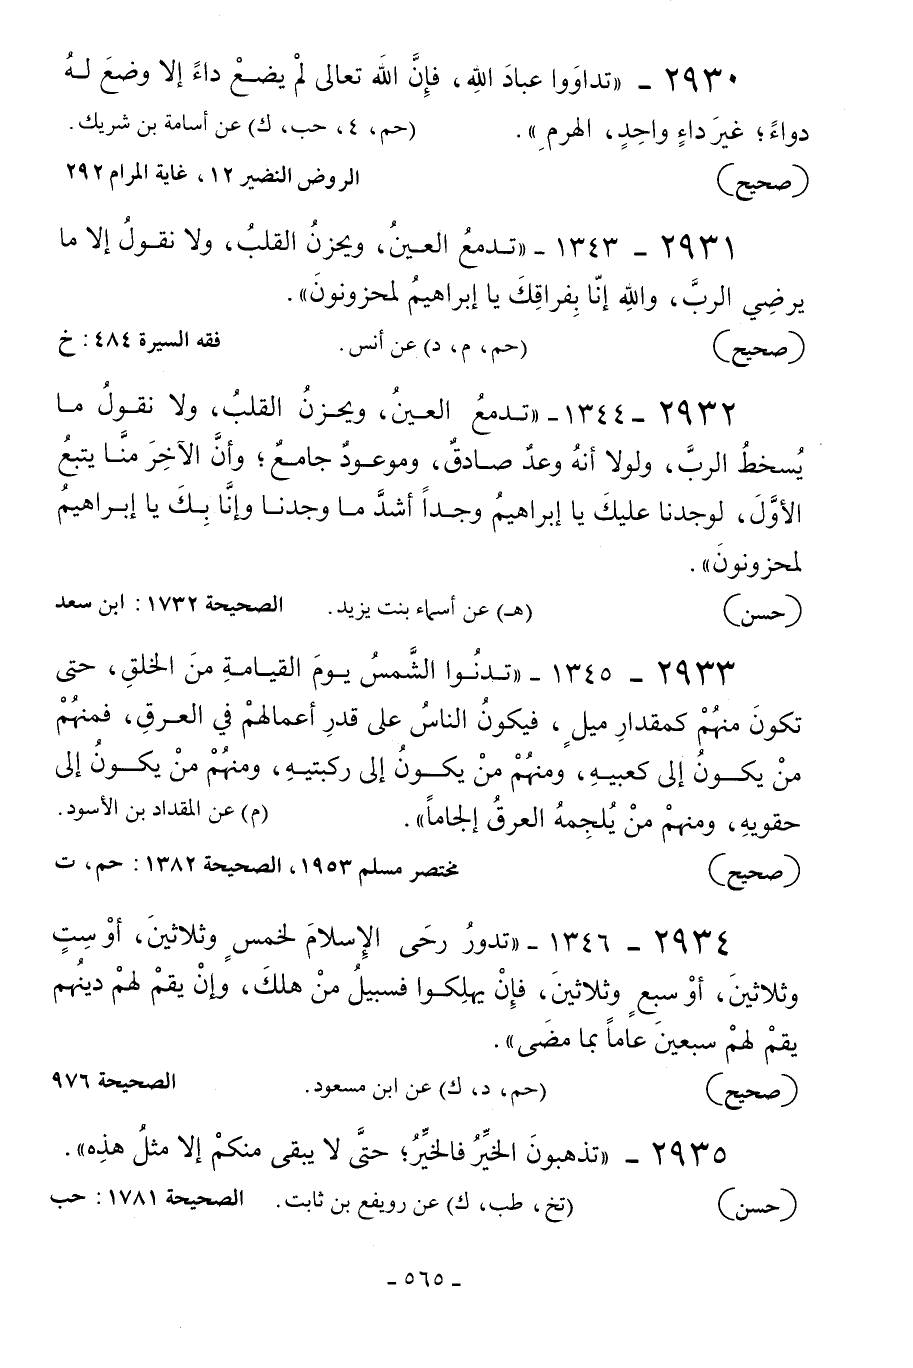 ٢٩٣٠ ـ «تداوَوا عبادَ اللهِ، فإِنَّ اللهَ تعالى لمْ يضـعْ داءً إلا وضعَ لـهُ
دواءً؛ غيرَ داءٍ واحِدٍ، الهرمِ». (حم، ٤، حب، ك) عن أسامة بن شريك.
(صحيح) الروض النضير ١٢، غاية المرام ٢٩٢
٢٩٣١ ـ ١٣٤٣ ـ «تـدمعُ العـينُ، ويحزنُ القلبُ، ولا نقـولُ إلا ما
يرضِي الربَّ، واللهِ إنَّا بِفراقِكَ يا إبراهيمُ لمحزونونَ».
(صحيح) (حم، م، د) عن أنس. فقه السيرة ٤٨٤ : خ
٢٩٣٢ ـ ١٣٤٤ـ «تـدمعُ العـينُ، ويحـزنُ القلبُ، ولا نقـولُ مـا
يُسخطُ الربَّ، ولولا أنهُ وعدٌ صـادقٌ، وموعـودٌ جامـعٌ؛ وأنَّ الآخِرَ منَّـا يتبعُ
الأوَّلَ، لوجدنا عليكَ يا إبراهيمُ وجـداً أشدَّ مـا وجدنـا وإنَّا بِـكَ يا إبـراهيمُ
لمحزونونَ».
(حسن) (هـ) عن أسماء بنت يزيد. الصحيحة ١٧٣٢ : ابن سعد
٢٩٣٣ ـ ١٣٤٥ ـ «تـدنُـوا الشَّمسُ يـومَ القيـامـةِ منَ الخلقِ، حتى
تكونَ منهُمْ كمقدارِ ميلٍ، فيكونُ الناسُ على قدرِ أعمالهمْ في العـرقِ، فمنهُمْ
منْ يكـونُ إلى كعبيـهِ، ومنهُمْ منْ يكـونُ إلى ركبتيـهِ، ومنهُمْ منْ يكـونُ إلى
حقويهِ، ومنهمْ منْ يُلجمهُ العرقُ إلجاماً». (م) عن المقداد بن الأسود.
(صحيح) مختصر مسلم ١٩٥٣، الصحيحة ١٣٨٢ : حم، ت
٢٩٣٤ ـ ١٣٤٦ ـ «تدورُ رحَى الإسلامَ لخمسٍ وثلاثينَ، أوْ سِتٍ
وثلاثينَ، أوْ سبعٍ وثلاثينَ، فإنْ يهلِكـوا فسبيلُ منْ هلكَ، وإنْ يقمْ لهمْ دينُهم
يقمْ لهمْ سبعينَ عاماً بما مضَى».
(صحيح) (حم، د، ك) عن ابن مسعود. الصحيحة ٩٧٦
٢٩٣٥ ـ «تذهبونَ الخيِّرُ فالخيِّرُ؛ حتَّى لا يبقى منكمْ إلا مثلُ هذِه».
(حسن) (تخ، طب، ك) عن رويفع بن ثابت. الصحيحة ١٧٨١ : حب
ـ ٥٦٥ ـ